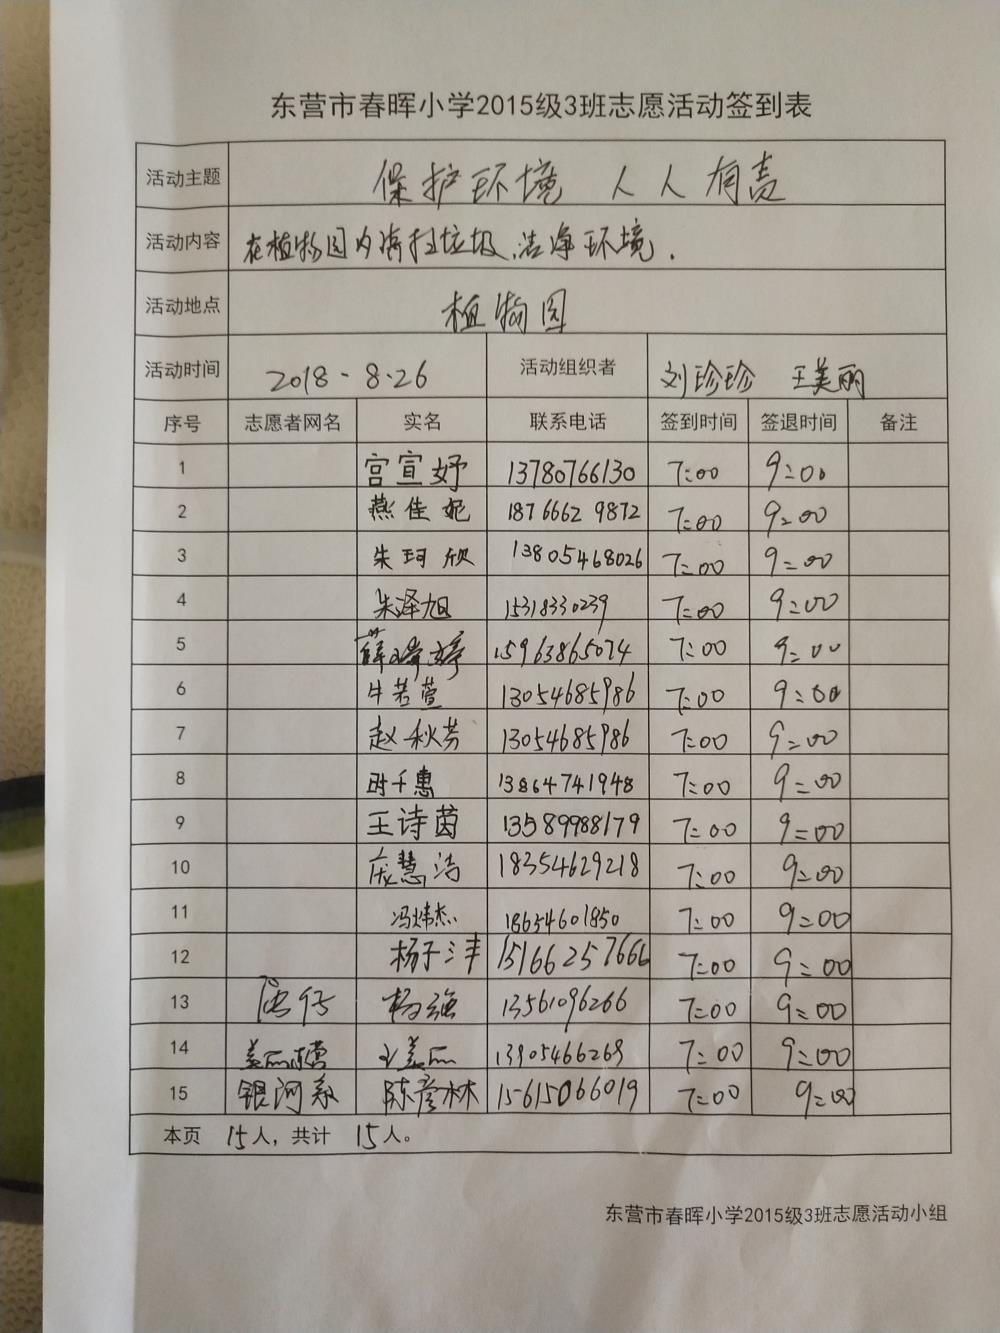 东营市春晖小学2015级3班志愿活动签到表
活动主题 保护环境 人人有责
活动内容 在植物园内清扫垃圾、洁净环境.
活动地点 植物园
活动时间 2018-8·26 活动组织者 刘珍珍 王美丽
序号 志愿者网名 实名 联系电话 签到时间 签退时间 备注
1 宫宣妤 13780766130 7:00 9:00
2 燕佳妮 18766629872 7:00 9:00
3 朱珂欣 13805468026 7:00 9:00
4 朱泽旭 15318330239 7:00 9:00
5 薛 15963865074 7:00 9:00
6 牛若萱 13054685986 7:00 9:00
7 赵秋芳 13054685986 7:00 9:00
8 时千惠 13864741948 7:00 9:00
9 王诗茵 13589988179 7:00 9:00
10 庞慧洁 18354629218 7:00 9:00
11 冯炜杰 18654601850 7:00 9:00
12 杨子沣 15166257666 7:00 9:00
13 杨强 13561096266 7:00 9:00
14 王美丽 13905466269 7:00 9:00
15 银河系 陈彦林 15615066019 7:00 9:00
本页 15人，共计 15人。
东营市春晖小学2015级3班志愿活动小组